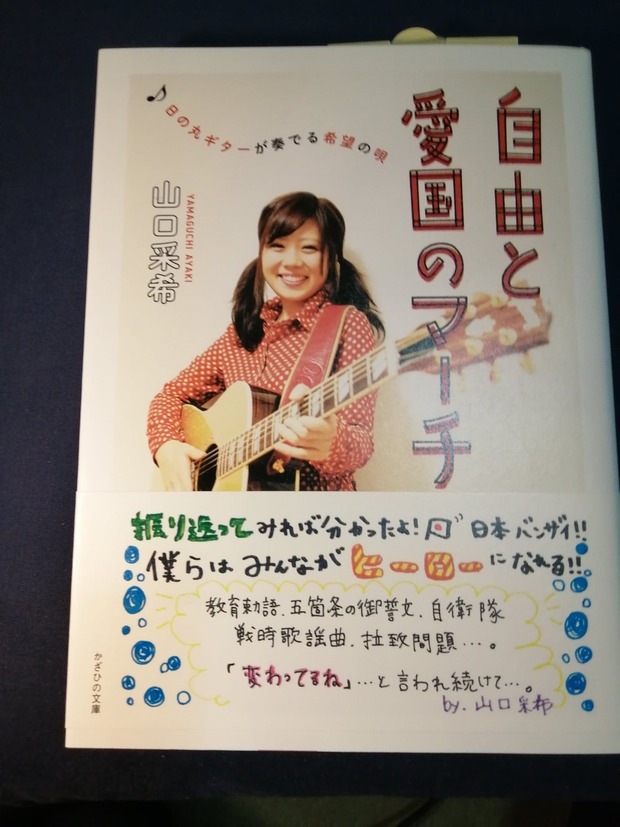 自由と
愛国のマーチ
♪日の丸ギターが奏でる希望の唄
山口采希
YAMAGUCHI AYAKI
振り返ってみれば分かったよ! 日本バンザイ!!
僕らはみんながヒーローになれる!!
教育勅語、五箇条の御誓文、自衛隊
戦時歌謡曲、拉致問題…。
「変わってるね」…と言われ続けて…。
by. 山口采希
かざひの文庫